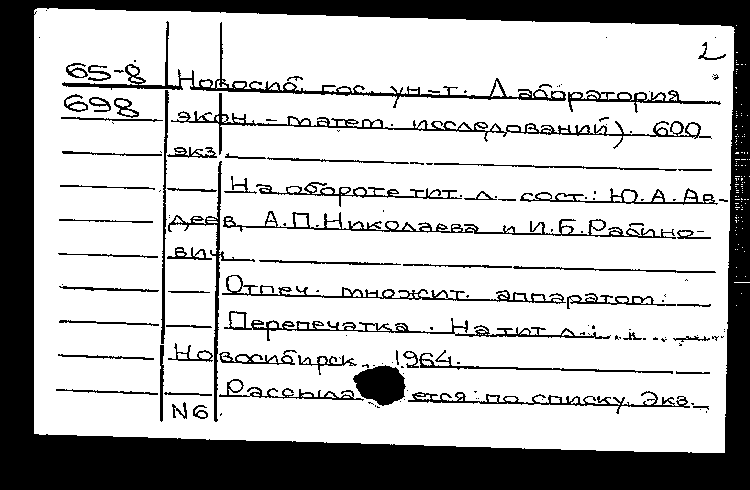 2
65-8 Новосиб. гос. ун-т. Лаборатория
698 экон.-матем. исследований). 600
экз.
На обороте тит. л. сост.: Ю.А.Ав-
деев, А.П.Николаева и И.Б.Рабино-
вич.
Отпеч. множит. аппаратом.
Перепечатка. На тит. л.:
Новосибирск. 1964.
Рассылается по списку. Экз.
N6